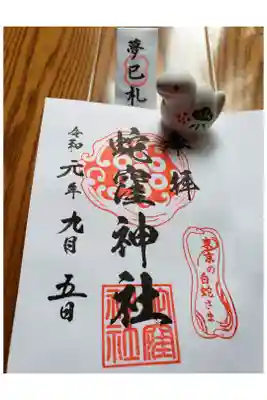 夢巳札
奉拝
蛇窪神社
令和元年九月五日
東京の白蛇さま
蛇窪神社